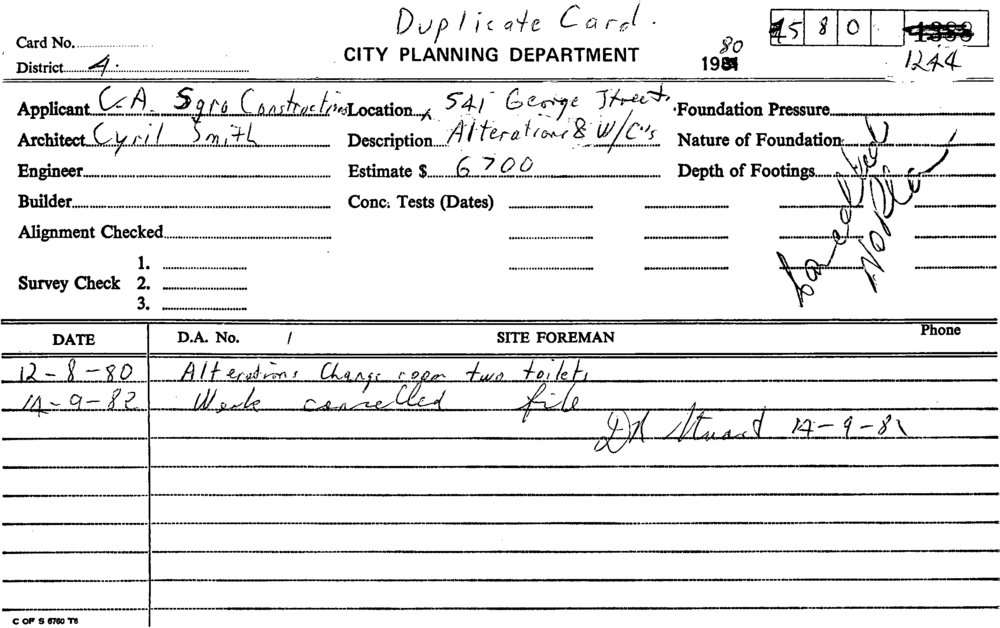 Duplicate Card.
45 8 0 1388
Card No.
CITY PLANNING DEPARTMENT
1980
1244
District 4.
Applicant C.A. Sgro Constructions Location 541 George Street. Foundation Pressure
Architect Cyril Smith Description Alterations & W/C's Nature of Foundation
Engineer Estimate $ 6700 Depth of Footings
Builder Conc. Tests (Dates)
Cancelled
Alignment Checked
1.
Survey Check 2.
3.
DATE D.A. No. / SITE FOREMAN Phone
12-8-80 Alterations Change room two toilets
14-9-82 Work cancelled file
Stuart 14-9-82
C OF S 6760 T6